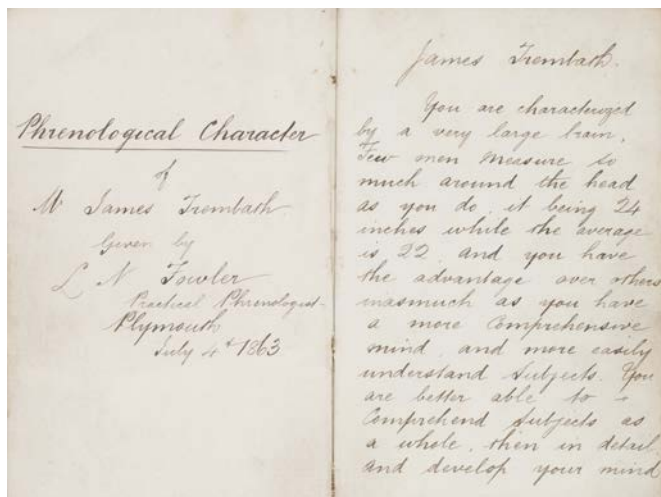 Phrenological Character
of
Mr James Trembath
Given by
L N Fowler
Practical Phrenologist
Plymouth
July 4th 1863
James Trembath.
You are characterized
by a very large brain.
Few men measure so
much around the head
as you do, it being 24
inches while the average
is 22 and you have
the advantage over others
inasmuch as you have
a more Comprehensive
mind, and more easily
understand subjects. You
are better able to
Comprehend subjects as
a whole, then in detail
and develop your mind